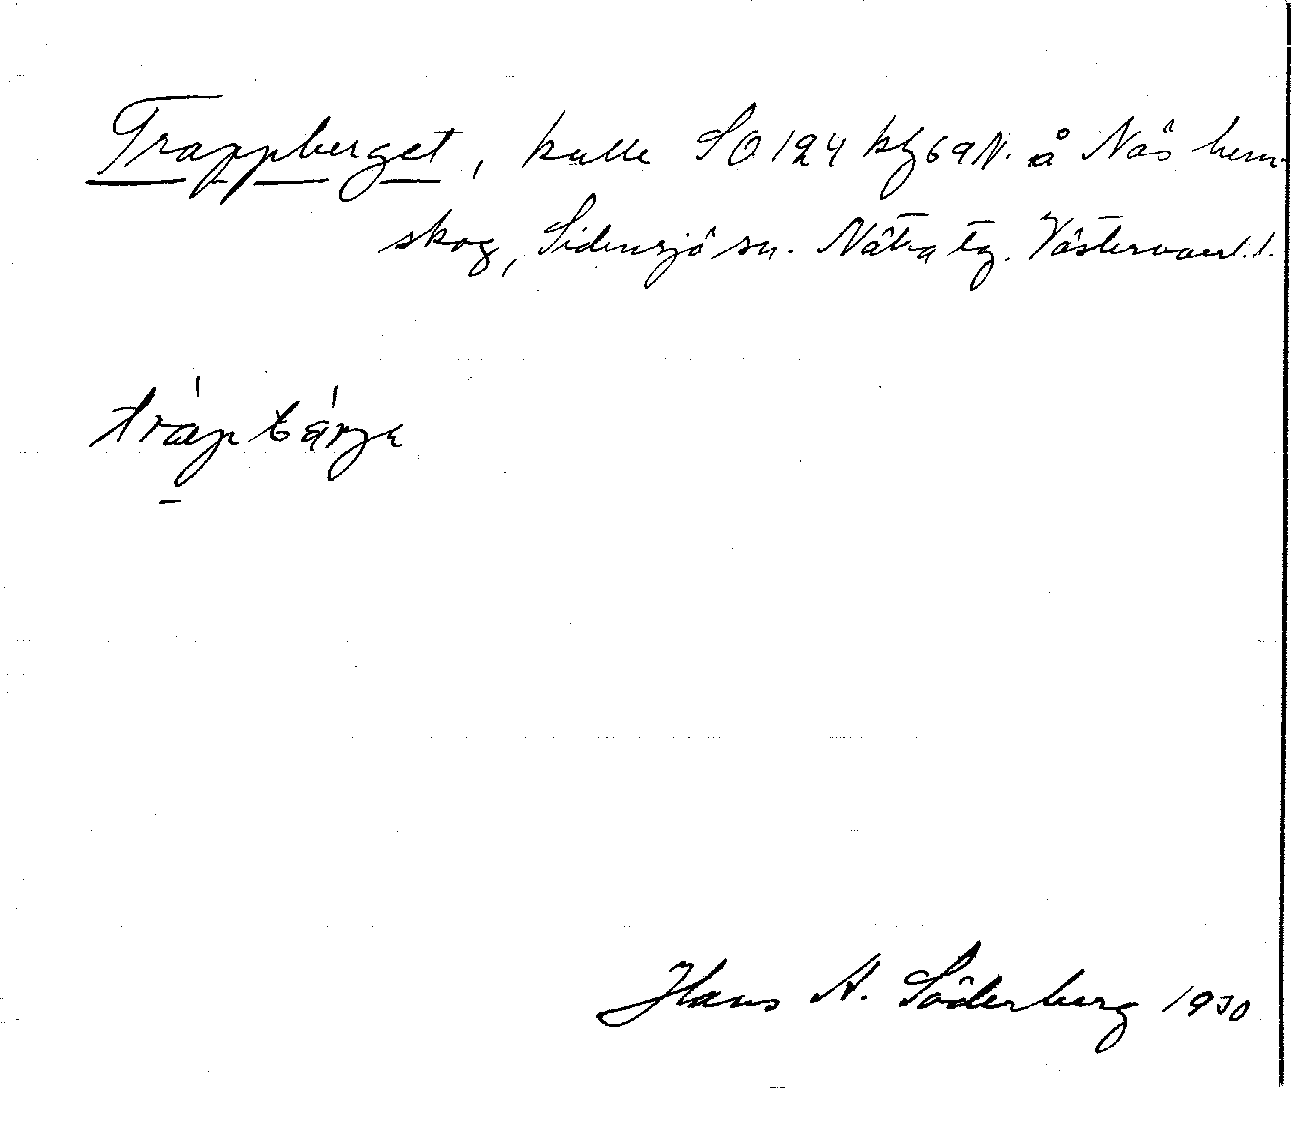 Trappberget, kulle SO 124 kfg 69 N. å Näs hem-
skog, Sidensjö sn. Nätra tg. Västernorrl. l.
tráp bárje
Hans A. Söderberg 1930